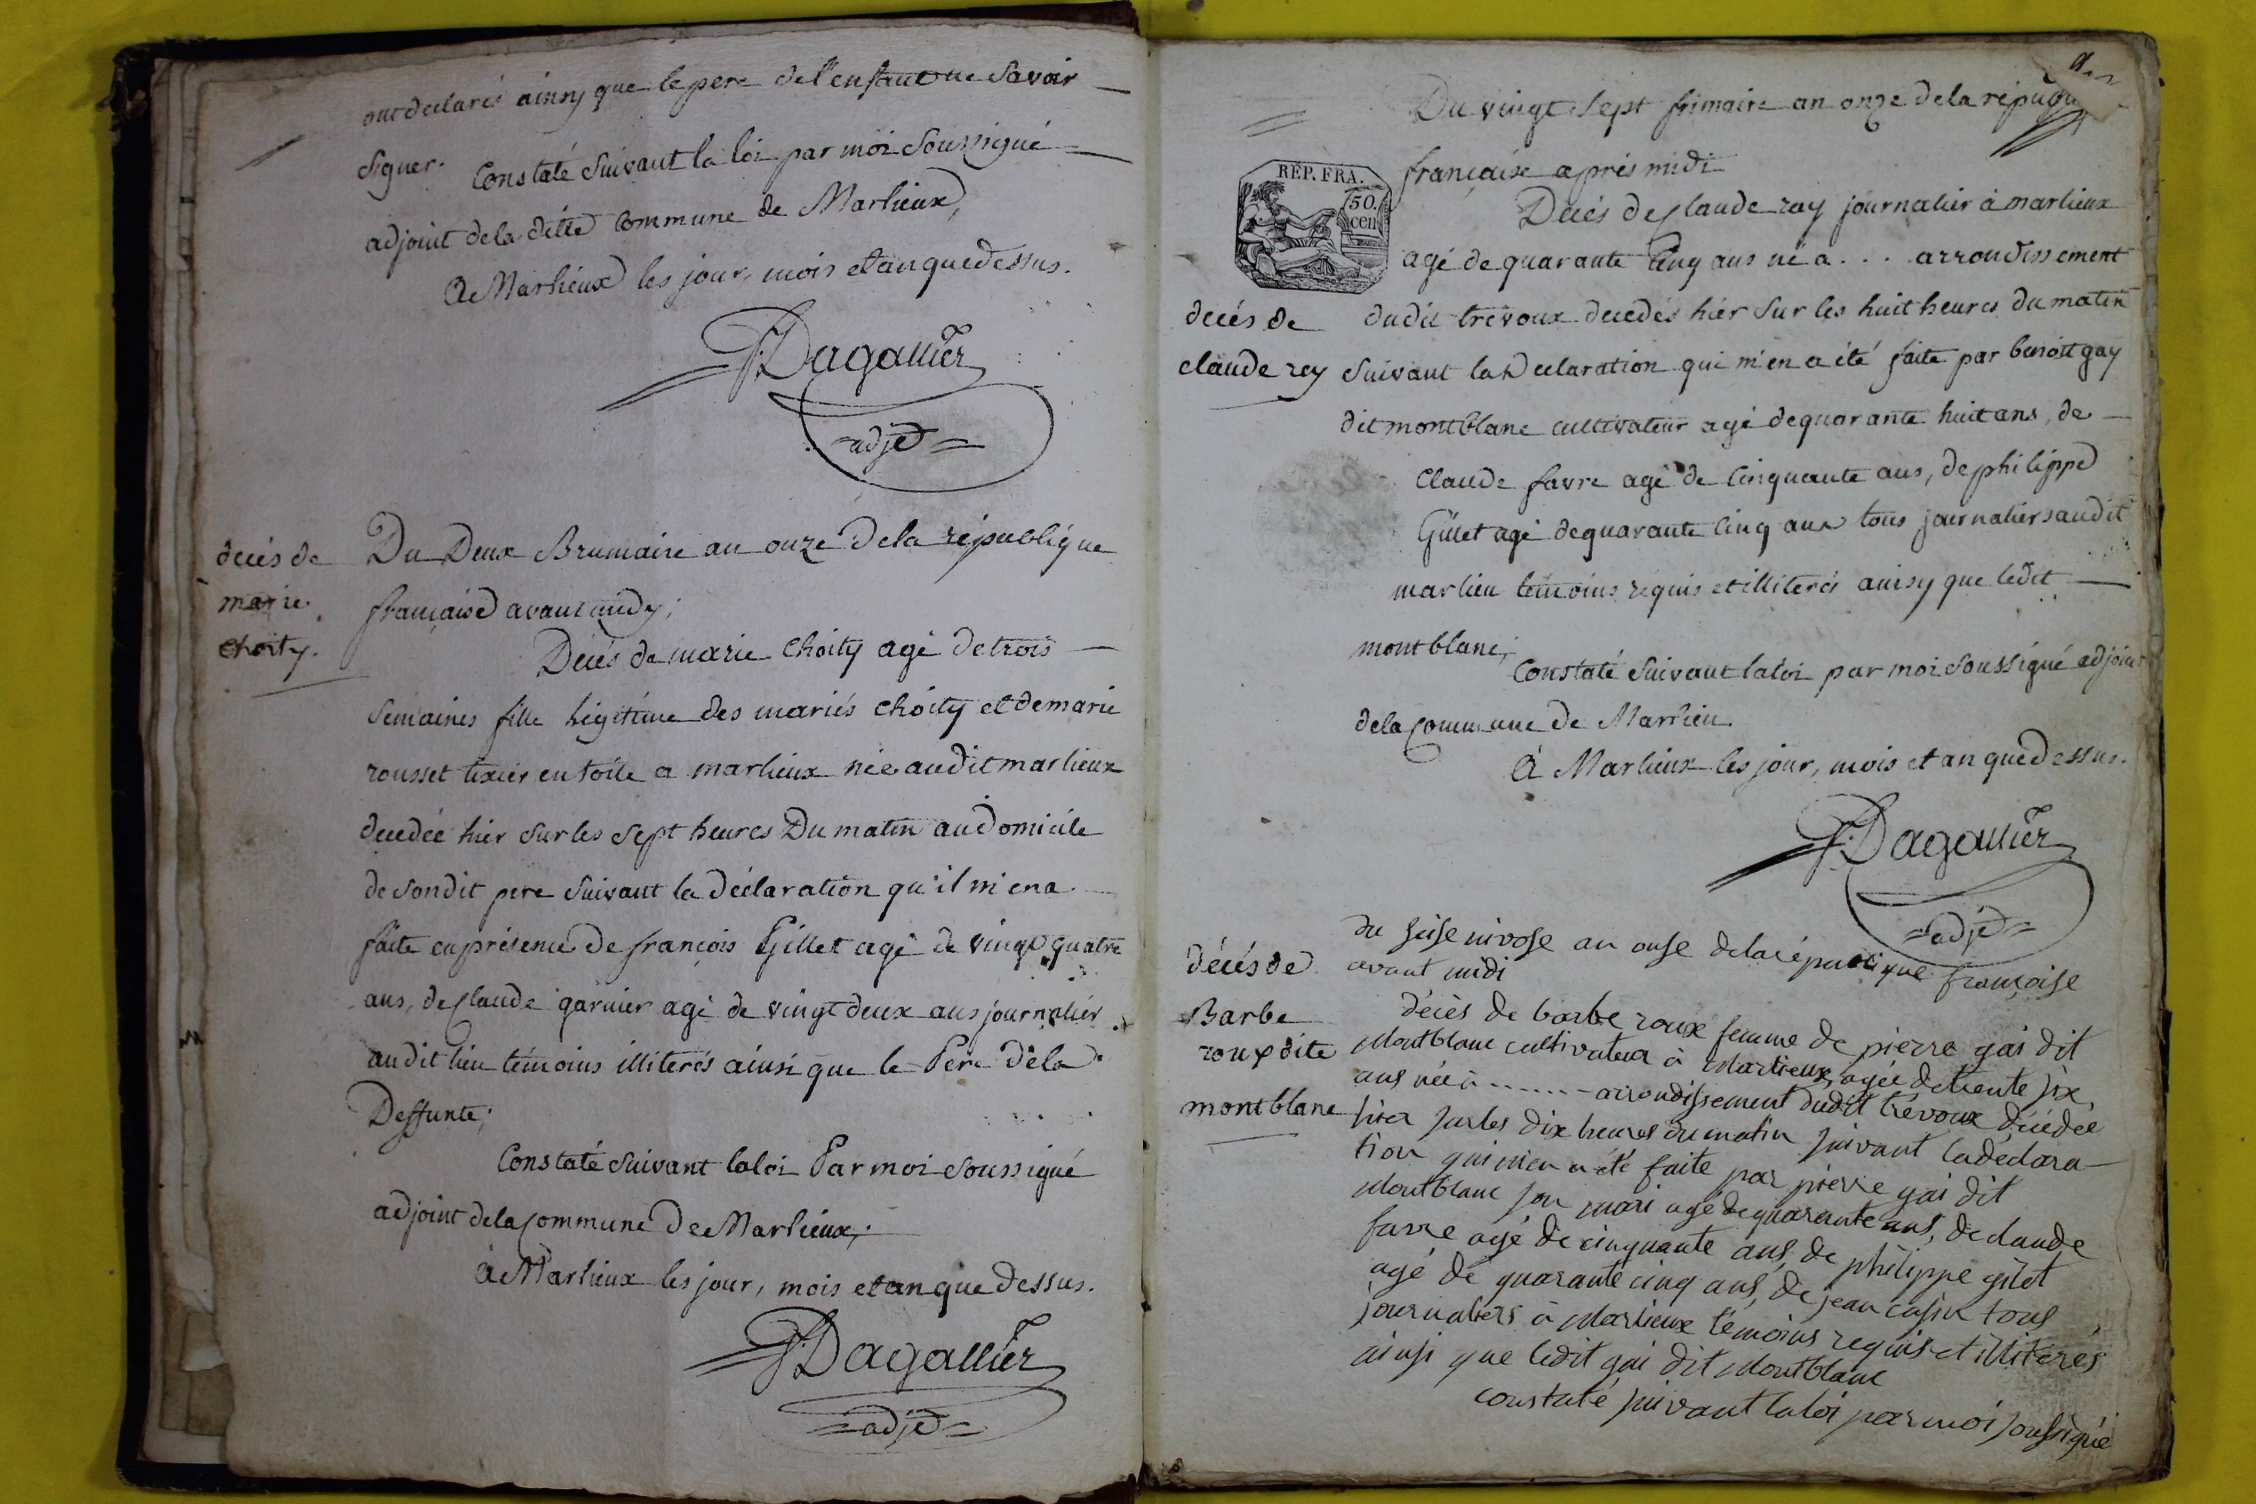 ont declarés ainsy que le pere de l'enfant ne Savoir
Signer.
Constaté Suivant la loi par moi Soussigné
adjoint de la ditte Commune de Marlieux,
A Marlieux les jour, mois et an que dessus.
Dagallier
adjt
decés de
marie
choity.
Du Deux Brumaire an onze De la république
française avant midy;
Décés de marie Choity agé de trois
Semaines fille légitime des mariés Choity et de marie
rousset tixier en toile a marlieux née audit marlieux
decedée hier sur les sept heures Du matin au Domicile
de Son dit pere Suivant la Déclaration qu'il m'en a
faite en présence De françois Gillet agé de vingt quatre
ans, de Claude garnier agé de vingt deux ans journalier
au dit lieu témoins illiterés ainsi que le Pere De la
Deffunte;
Constaté Suivant la loi Par moi Soussigné
adjoint de la Commune De Marlieux;
A Marlieux les jour, mois et an que dessus.
Dagallier
adjt
Du vingt Sept frimaire an onze de la
française aprés midi
RÉP. FRA.
50.
cen
Decés de Claude ray journalier à marlieux
agé de quarante Cinq ans né a . . . arrondissement
decés de
claude rey
dudit trevoux decedés hier Sur les huit heures du matin
Suivant la Declaration qui m'en a été faite par benoit gay
dit montblanc cultivateur agé de quarante huit ans, de
Claude favre agé de Cinquante ans, de philippe
Gillet agé de quarante Cinq ans tous journaliers audit
marlieu témoins requis et illiterés ainsy que ledit
montblanc;
Constaté Suivant la loi par moi Soussigné adjoint
de la Commune De Marlieu
A Marlieux les jour, mois et an que dessus.
Dagallier
adjt
décés de
Barbe
roux dite
montblanc
du seise nivose an onse de la république françoise
avant midi
décès de barbe roux femme de pierre gai dit
Montblanc cultivateur à Marlieux, agée de trente six
ans née à ...... arrondissement dudit trévoux décédée
hier sur les dix heures du matin suivant la déclara-
tion qui m'en a été faite par pierre gai dit
Montblanc son mari agé de quarante ans, de claude
favre agé de cinquante ans, de philippe gilet
agé de quarante cinq ans, de jean tous
journaliers à Marlieux témoins requis et illiterés
ainsi que ledit gai dit Montblanc
constaté suivant la loi par moi soussigné